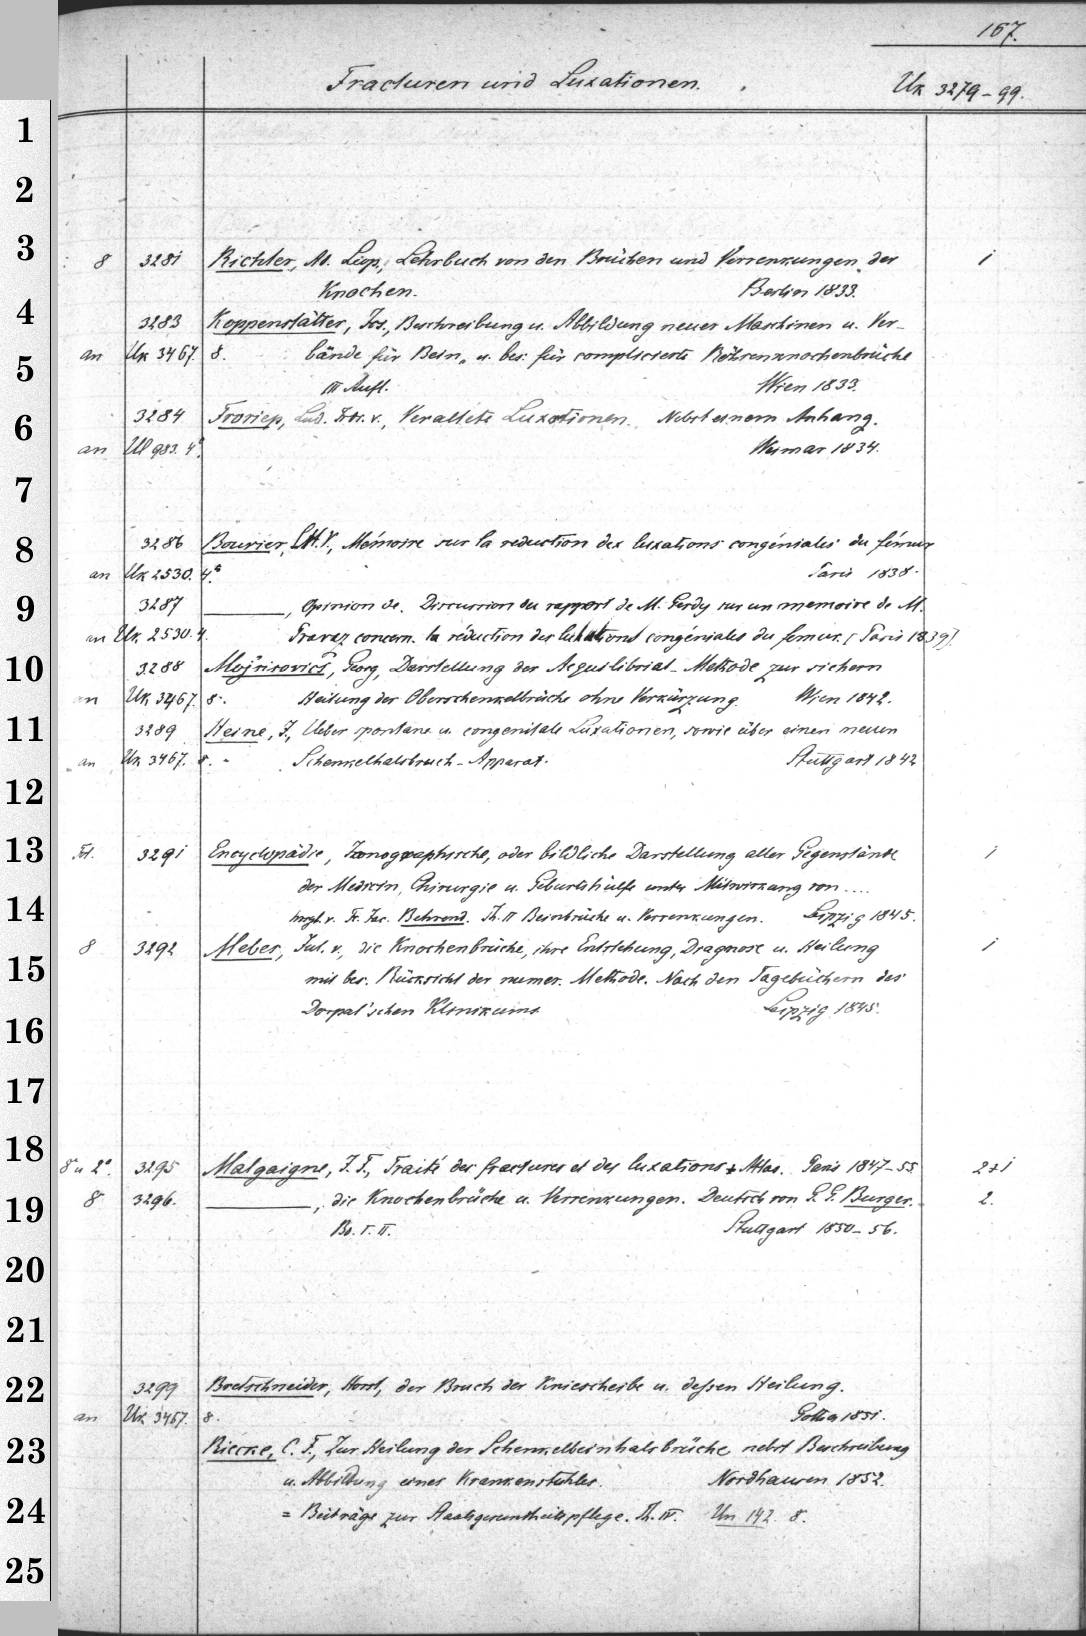 167.
Fracturen und Luxationen. Uk 3279-99.
1
2
3
8 3281 Richter, Ad. Leop., Lehrbuch von den Brüchen und Verrenkungen der 1
Knochen. Berlin 1833.
4
3283 Koppenstätter, Jos., Beschreibung u. Abbildung neuer Maschinen u. Ver-
5
an Uk 3467. 8. bände für Bein- u. bes. für complicierte Röhrenknochenbrüche
III Aufl. Wien 1833.
6
3284 Froriep, Lud. Fdr. v., Veraltete Luxationen. Nebst einem Anhang.
an Ul 983. 4° Weimar 1834.
7
8
3286 Bouvier, Mémoire sur la reduction des luxations congéniales du fémur
an Uk 2530. 4° Paris 1838.
9
3287 ———, Opinion de. Discussion du rapport de M. Gerdy sur un memoire de M.
an Uk 2530. 4. Pravaz concern. la réduction des luxations congéniales du femur. [Paris 1839].
10
3288 Mojsisovics, Georg, Darstellung der Aequilibrial-Methode zur sichern
an Uk 3467. 8. Heilung der Oberschenkelbrüche ohne Verkürzung. Wien 1842.
11
3289 Heine, J., Ueber spontane u. congenitale Luxationen, sowie über einen neuen
an Uk 3467. 8. Schenkelhalsbruch-Apparat. Stuttgart 1842
12
13
Fol. 3291 Encyclopädie, Ikonographische, oder bildliche Darstellung aller Gegenstände 1
der Medicin, Chirurgie u. Geburtshülfe unter Mitwirkung von ....
14
hrsg. v. Fr. Jac. Behrend. Th. II Beinbrüche u. Verrenkungen. Leipzig 1845.
8 3292 Meber, Jul. v., die Knochenbrüche, ihre Entstehung, Diagnose u. Heilung 1
15
mit bes. Rücksicht der numer. Methode. Nach den Tagebüchern des
Dorpat'schen Klinikums Leipzig 1845.
16
17
18
8 u 2°. 3295 Malgaigne, J. F., Traité des fractures et des luxations + Atlas. Paris 1847-55. 2+1
19
8 3296. ———, die Knochenbrüche u. Verrenkungen. Deutsch von G. G. Burger. 2.
Bd. I. II. Stuttgart 1850-56.
20
21
22
3299 Bretschneider, Horst, der Bruch der Kniescheibe u. dessen Heilung.
an Uk 3467. 8. Gotha 1851.
23
Riecke, C. F., Zur Heilung der Schenkelbeinhalsbrüche nebst Beschreibung
u. Abbildung eines Krankenstuhles. Nordhausen 1852.
24
= Beiträge zur Staatsgesundheitspflege. Th. IV. Un 142. 8.
25